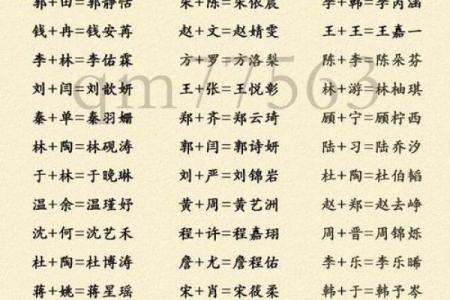 郭+田=郭静恬 朱+陈=朱依宸 李+韩=李芮涵
钱+冉=钱安苒 赵+文=赵婧雯 王+王=王嘉一
李+林=李佑霖 方+罗=方洛梨 陈+李=陈朵芬
刘+闫=刘歆妍 王+张=王悦彰 林+游=林柚琪
秦+单=秦羽姗 郑+齐=郑云琦 顾+宁=顾柠西
林+陶=林砚涛 郭+闫=郭诗妍 陆+习=陆乔汐
于+林=于晚琳 刘+严=刘锦岩 杜+陶=杜伯韬
温+余=温瑾妤 黄+周=黄艺洲 赵+郑=赵去峥
沈+何=沈艺禾 程+许=程嘉珝 周+晋=周锦烁
杜+陶=杜博涛 詹+尤=詹程佑 李+乐=李乐晞
蒋+姚=蒋星瑶 宋+肖=宋筱柔 韩+于=韩予岑
qm77563